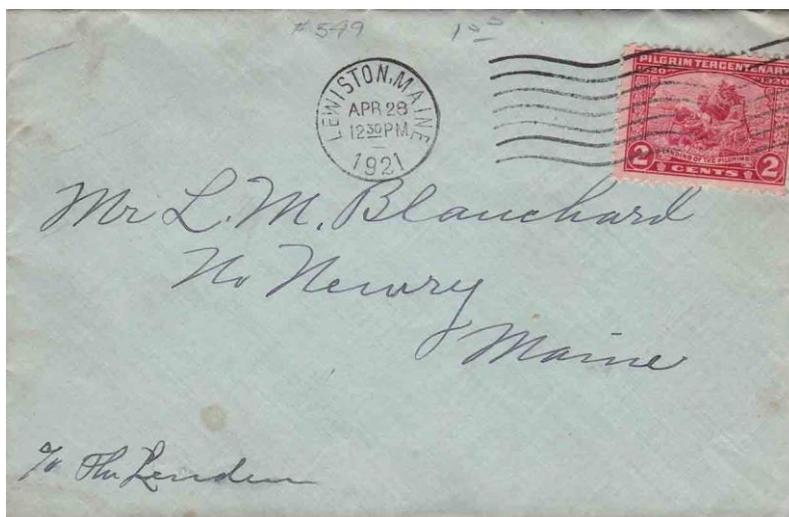 #549 1⁰⁰
LEWISTON, MAINE
APR 28
12 30 PM
1921
PILGRIM TERCENTENARY
1620 1920
LANDING OF THE PILGRIMS
2 CENTS 2
Mr L. M. Blanchard
No Newry
Maine